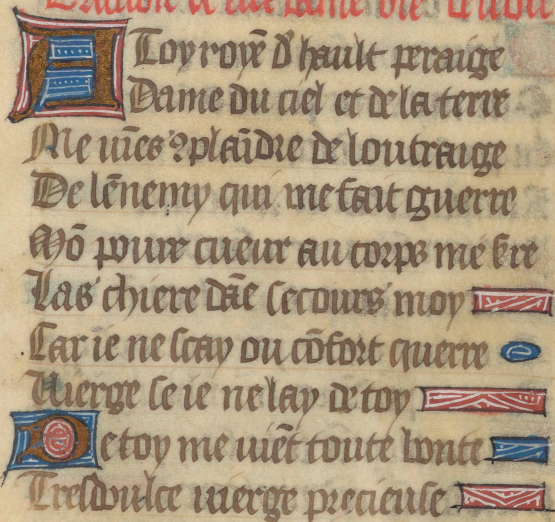 A Toy royē d'hault peraige
Dame du ciel et de la terre
Me viēs ꝯplaīdre de loutraige
De lēnemy qui me fait guerre
Mō poure cueur au corps me ẜre
Las chiere dāe secours moy
Car ie ne scay ou cōfort querre
Vierge se ie ne lay de toy
De toy me viēt toute bonte
Tresdoulce vierge precieuse